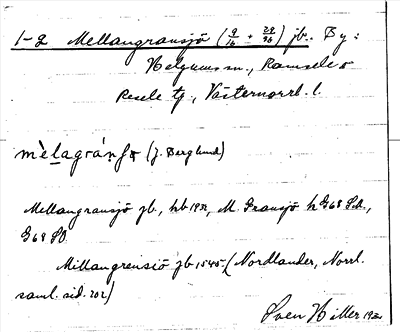 1-2 Mellangransjö (9/16 + 29/96) jb. By:
Helgums sn., Ramsele o
Resele tg, Västernorrl. l.
mèlagrán (J. Berglund)
Mellangransjö jb., M. Gransjö h G68 SO,
G68 SO
Millangrensiö jb 1545. (Nordlander, Norrl.
saml. sid. 202)
Sven Hiller